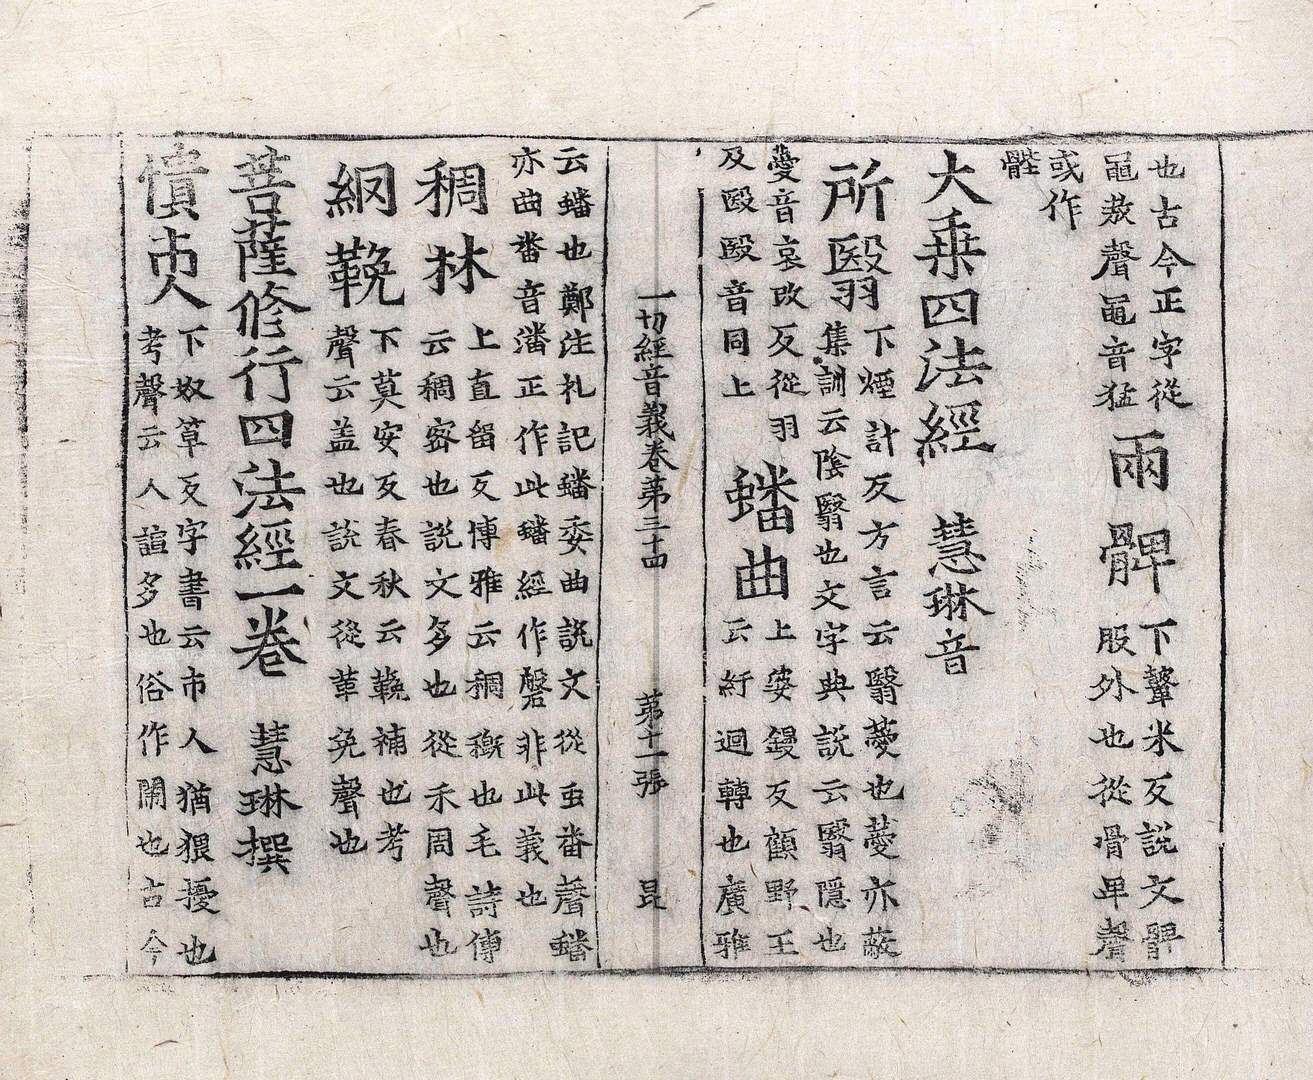 也古今正字從
黽敖聲黽音猛
兩髀
下鼙米反説文髀
股外也從骨卑聲
或作
䏶
大乗四法經 慧琳音
所翳
下煙計反方言云翳薆也薆亦蔽
集訓云陰翳也文字典説云翳隱也
薆音哀改反從羽
及殹殹音同上
蟠曲
上婆鏝反顧野王
云紆迴轉也廣雅
一切經音義卷苐三十四 苐十一張 昆
云蟠也鄭注礼記蟠委曲説文從䖝番聲蟠
亦曲番音潘正作此蟠經作磐非此義也
稠林
上直留反博雅云稠穊也毛詩傳
云稠宻也説文多也從禾周聲也
網鞔
下莫安反春秋云鞔補也考
聲云盖也説文從革免聲也
菩薩修行四法經一卷 慧琳撰
憒𠆴
下奴草反字書云市人猶猥擾也
考聲云人諠多也俗作閙也古今